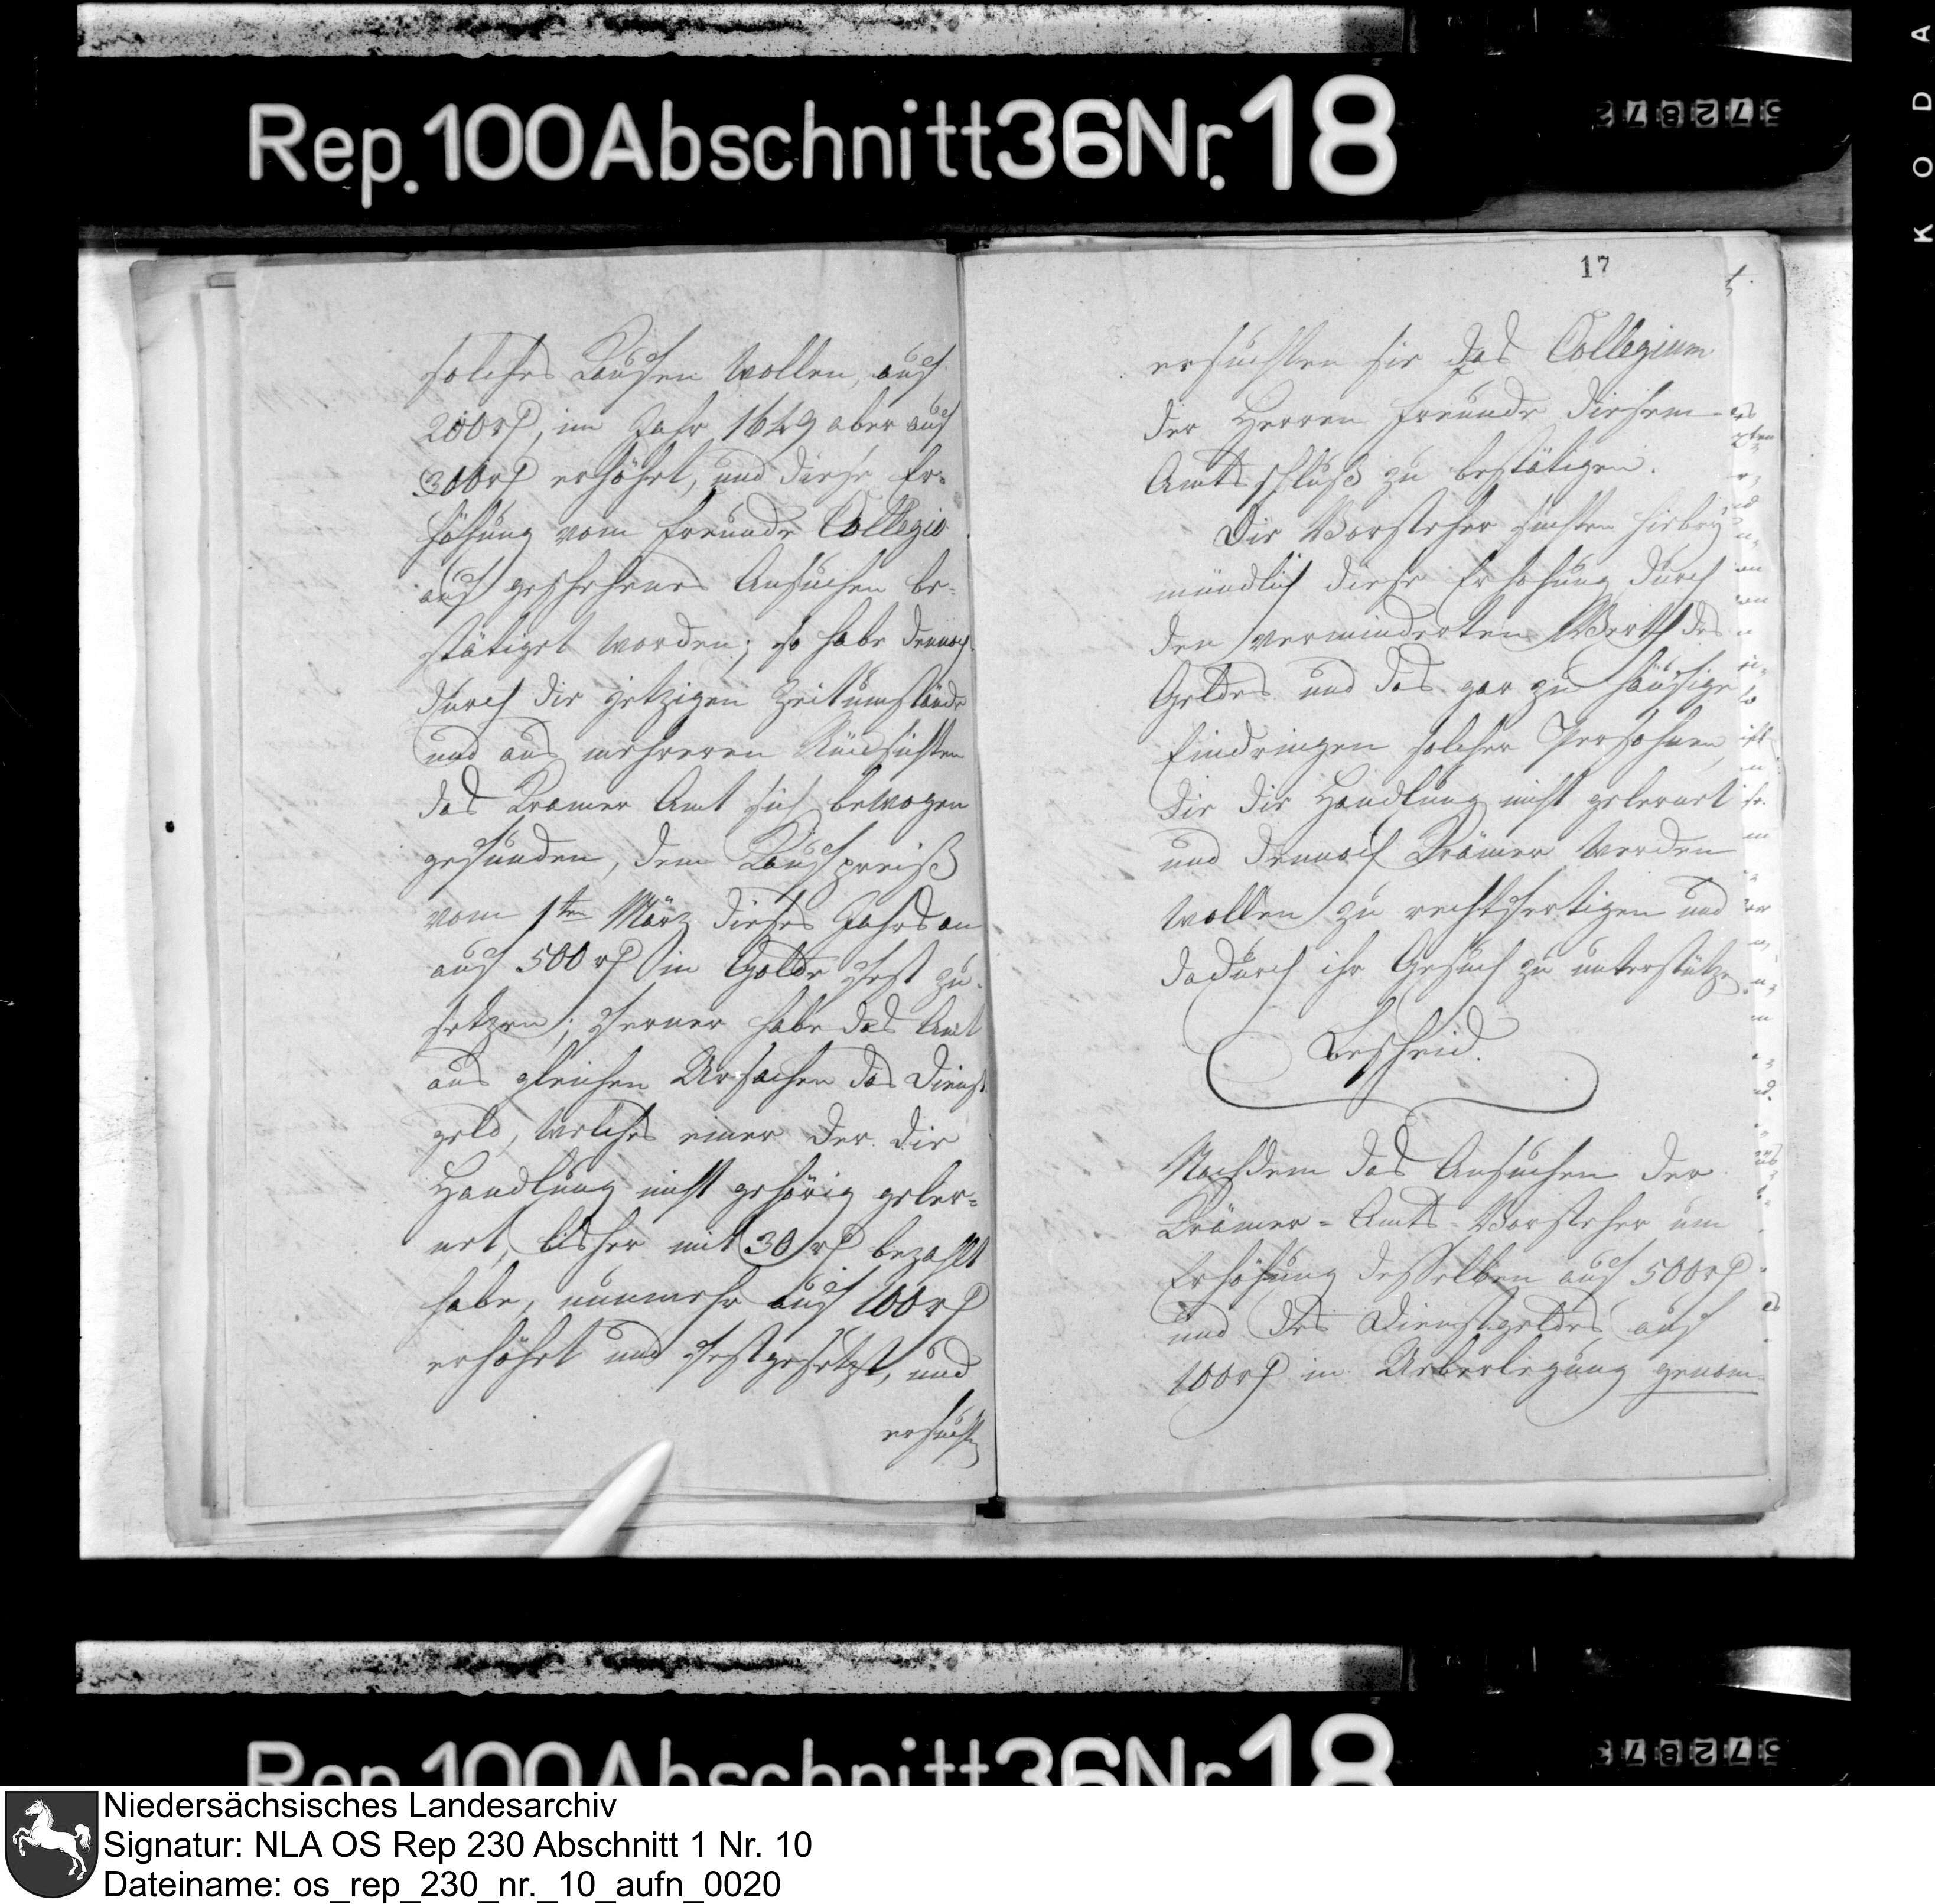 KODA
Rep. 100 Abschnitt 36 Nr. 18
572872
solches Kaufen wollen, auf
200 rℓ, im Jahr 1649 aber auf
300 rℓ erhöhet, und diese Er-
höhung vom Freunde Collegio
auf geschehenes Ansuchen be-
stätiget worden; so habe dennoch
durch die jetzigen Zeitumstände
und aus mehreren Rücksichten
das Kramer Amt sich bewogen
gefunden, dem Kaufpreiß
vom 1ten März dieses Jahrs an
auf 500 rℓ in Golde fest zu
setzen; ferner habe das Amt
aus gleichen Ursachen das Dienst
geld, welches einer der die
Handlung nicht gehörig geler-
net, bisher mit 30 rℓ bezahlt
habe, nunmehr auf 100 rℓ
erhöhet und festgesetzt, und
ersuchten
17
ersuchten sie das Collegium
der Herren Freunde diesem
Amtsschluß zu bestätigen.
Die Vorsteher suchten hiebey
mündlich diese Erhöhung durch
den verminderten Werth des
Geldes und das gar zu häufige
Eindringen solcher Persohnen,
die die Handlung nicht gelernet
und dennoch Krämer werden
wollen zu rechtfertigen und
dadurch ihr Gesuch zu unterstützen
Bescheid.
Nachdem das Ansuchen der
Krämer-Amts-Vorsteher um
Erhöhung desselben auf 500 rℓ
und des Dienstgeldes auf
100 rℓ in Ueberlegung genom-
Rep. 100 Abschnitt 36 Nr. 18
572873
Niedersächsisches Landesarchiv
Signatur: NLA OS Rep 230 Abschnitt 1 Nr. 10
Dateiname: os_rep_230_nr._10_aufn_0020